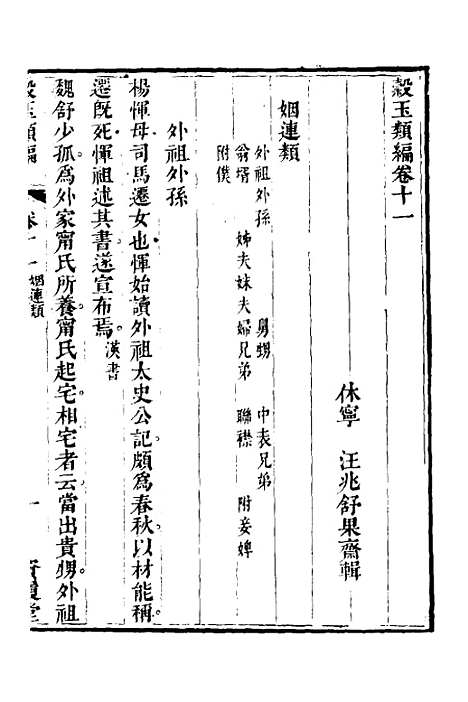 穀玉類編卷十一
休寧　汪兆舒果齋輯
姻連類
外祖外孫　舅甥　中表兄弟
翁壻　姊夫妹夫婦兄弟　聯襟　附妾婢
附僕
外祖外孫
楊惲母司馬遷女也惲始讀外祖太史公記頗為春秋以材能稱
遷既死惲祖述其書遂宣布焉漢書
魏舒少孤為外家甯氏所養甯氏起宅相宅者云當出貴甥外祖
穀玉類編　卷十一　姻連類　一